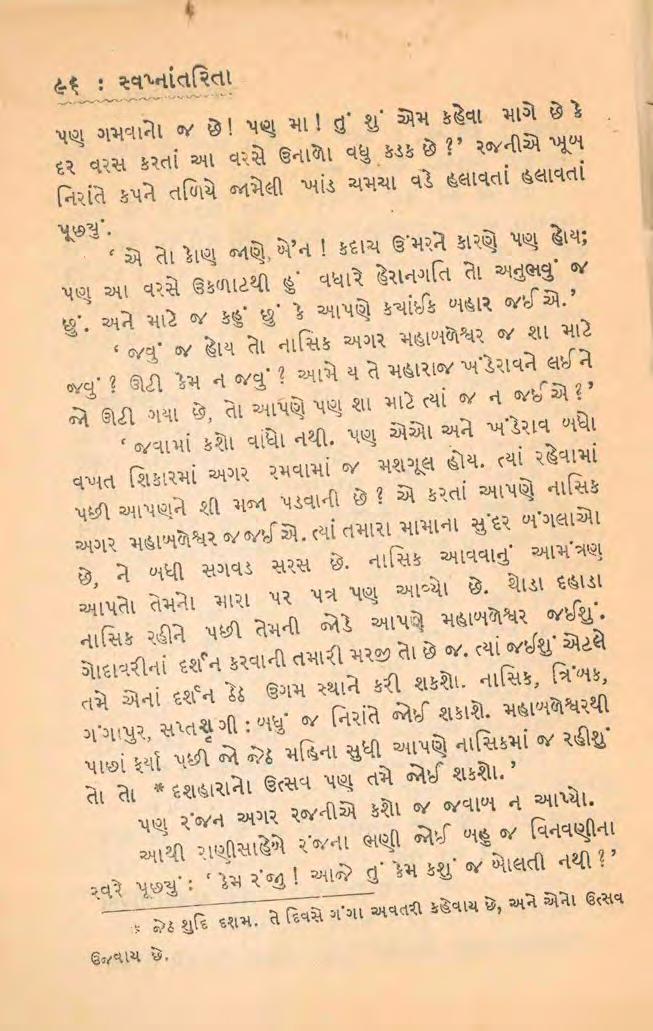 ૯૬ : સ્વપ્નાંતરિતા
પણ ગમવાનો જ છે! પણ મા! તું શું એમ કહેવા માગે છે કે
દર વરસ કરતાં આ વરસે ઉનાળો વધુ કડક છે?' રજનીએ ખૂબ
નિરાંતે કપને તળિયે જામેલી ખાંડ ચમચા વડે હલાવતાં હલાવતાં
પૂછ્યું.
‘ એ તો કોણ જાણે, બે'ન! કદાચ ઉંમરને કારણે પણ હોય;
પણ આ વરસે ઉકળાટથી હું વધારે હેરાનગતિ તો અનુભવું જ
છું. અને માટે જ કહું છું કે આપણે કયાંઈક બહાર જઈએ.'
‘ જવું જ હોય તો નાસિક અગર મહાબળેશ્વર જ શા માટે
જવું? ઊટી કેમ ન જવું? આમે ય તે મહારાજ ખંડેરાવને લઈને
જો ઊટી ગયા છે, તો આપણે પણ શા માટે ત્યાં જ ન જઈએ?'
‘ જવામાં કશો વાંધો નથી. પણ એઓ અને ખંડેરાવ બધો
વખત શિકારમાં અગર રમવામાં જ મશગૂલ હોય. ત્યાં રહેવામાં
પછી આપણને શી મજા પડવાની છે? એ કરતાં આપણે નાસિક
અગર મહાબળેશ્વર જ જઈએ. ત્યાં તમારા મામાના સુંદર બંગલાઓ
છે, ને બધી સગવડ સરસ છે. નાસિક આવવાનું આમંત્રણ
આપતો તેમનો મારા પર પત્ર પણ આવ્યો છે. થોડા દહાડા
નાસિક રહીને પછી તેમની જોડે આપણે મહાબળેશ્વર જઈશું.
ગોદાવરીનાં દર્શન કરવાની તમારી મરજી તો છે જ. ત્યાં જઈશું એટલે
તમે એનાં દર્શન ઠેઠ ઉગમ સ્થાને કરી શકશો. નાસિક, ત્રિંબક,
ગંગાપુર, સપ્તશૃંગી : બધું જ નિરાંતે જોઈ શકાશે. મહાબળેશ્વરથી
પાછાં ફર્યા પછી જો જેઠ મહિના સુધી આપણે નાસિકમાં જ રહીશું
તો તો *દશહારાનો ઉત્સવ પણ તમે જોઈ શકશો.'
પણ રંજન અગર રજનીએ કશો જ જવાબ ન આપ્યો.
આથી રાણીસાહેબે રંજના ભણી જોઈ બહુ જ વિનવણીના
સ્વરે પૂછ્યું: ‘કેમ રંજુ! આજે તું કેમ કશું જ બોલતી નથી?'
* જેઠ શુદિ દશમ. તે દિવસે ગંગા અવતરી કહેવાય છે, અને એનો ઉત્સવ
ઉજવાય છે.